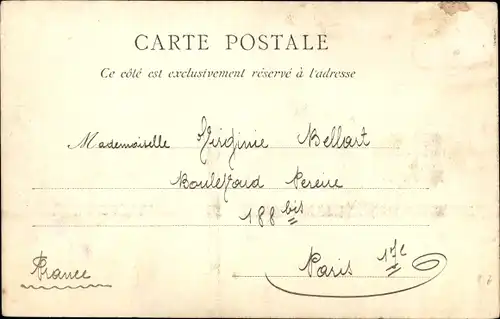 CARTE POSTALE
Ce côté est exclusivement réservé à l'adresse
Mademoiselle Virginie Bellart
Boulevard Pereire
188 bis
Paris 17e
France